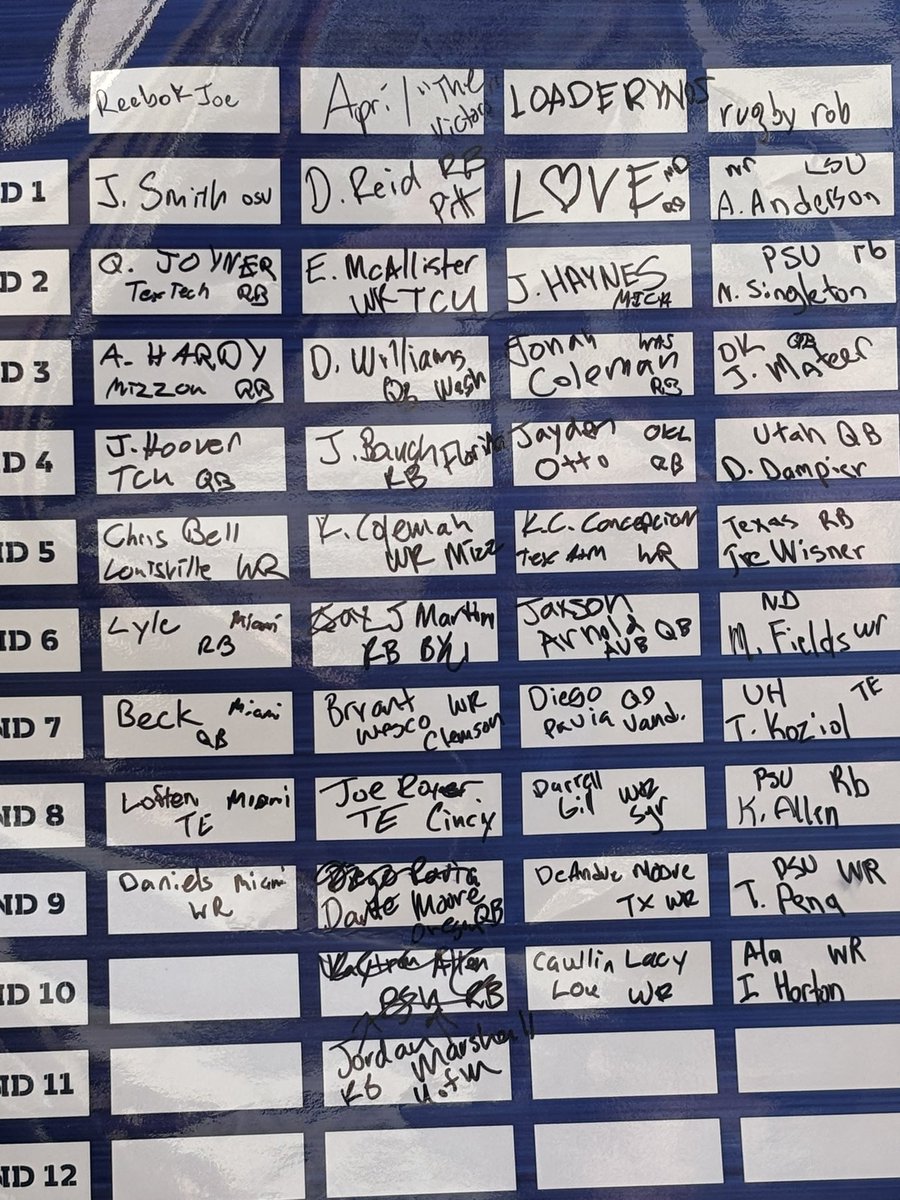 Reebok Joe
April "The
Victor"
LOADERYNOS
rugby rob
D 1
J. Smith OSU
D. Reid RB
Pitt
L♡VE ND
RB
WR LSU
A. Anderson
D 2
Q. JOYNER
Tex Tech RB
E. McAllister
WR TCU
J. HAYNES
MICH
PSU rb
N. Singleton
D 3
A. HARDY
Mizzou RB
D. Williams
QB Wash
Jonah Was
Coleman
RB
OK QB
J. Mateer
D 4
J. Hoover
TCU QB
J. Baugh Florida
RB
Jayden OKL
Otto RB
Utah QB
D. Dampier
ND 5
Chris Bell
Louisville WR
K. Coleman
WR Mizz
K.C. Concepcion
Tex A&M WR
Texas RB
Tre Wisner
ND 6
Lyle Miami
RB
Jay J Martin
RB BYU
Jaxson
Arnold QB
AUB
ND
M. Fields wr
ND 7
Beck Miami
QB
Bryant WR
Wesco Clemson
Diego QB
Pavia Vand.
UH TE
T. Koziol
ND 8
Loften Miami
TE
Joe Royer
TE Cincy
Darrell
Gil WR
Syr
PSU Rb
K. Allen
ND 9
Daniels Miami
WR
Diego Pavia
Dante Moore
Oregon QB
DeAndre Moore
TX WR
PSU WR
T. Pena
ND 10
Kaytron Allen
PSU RB
Caullin Lacy
Lou WR
Ala WR
I Horton
ND 11
Jordan Marshall
RB U of M
ND 12